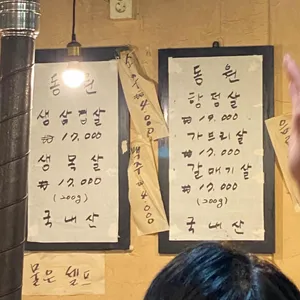 동원
생삼겹살
₩17.000
생목살
₩17.000
(200g)
국내산
소주 4000
맥주 4000
동원
항정살
₩19.000
가브리살
₩17.000
갈매기살
₩17.000
(200g)
국내산
물은 셀프